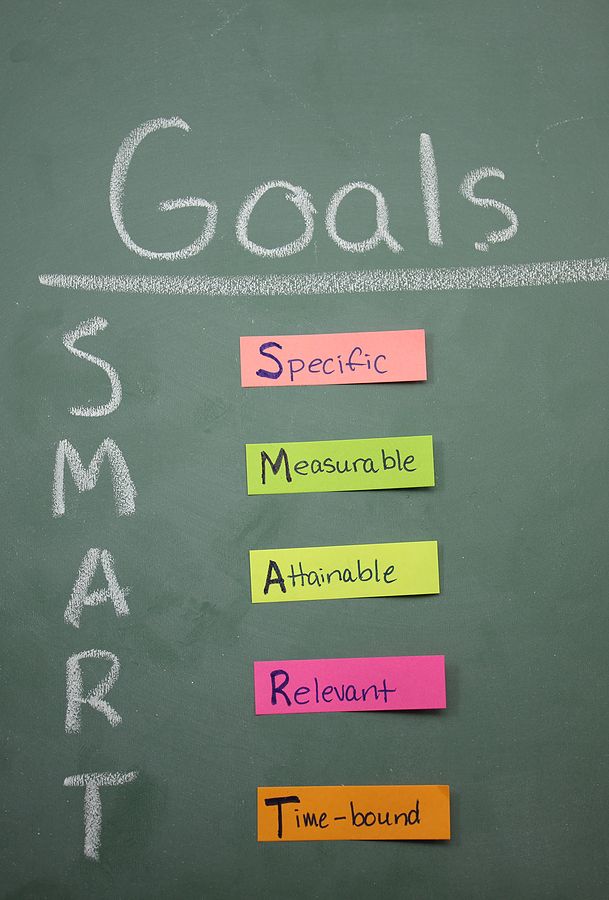 Goals
S Specific
M Measurable
A Attainable
R Relevant
T Time-bound